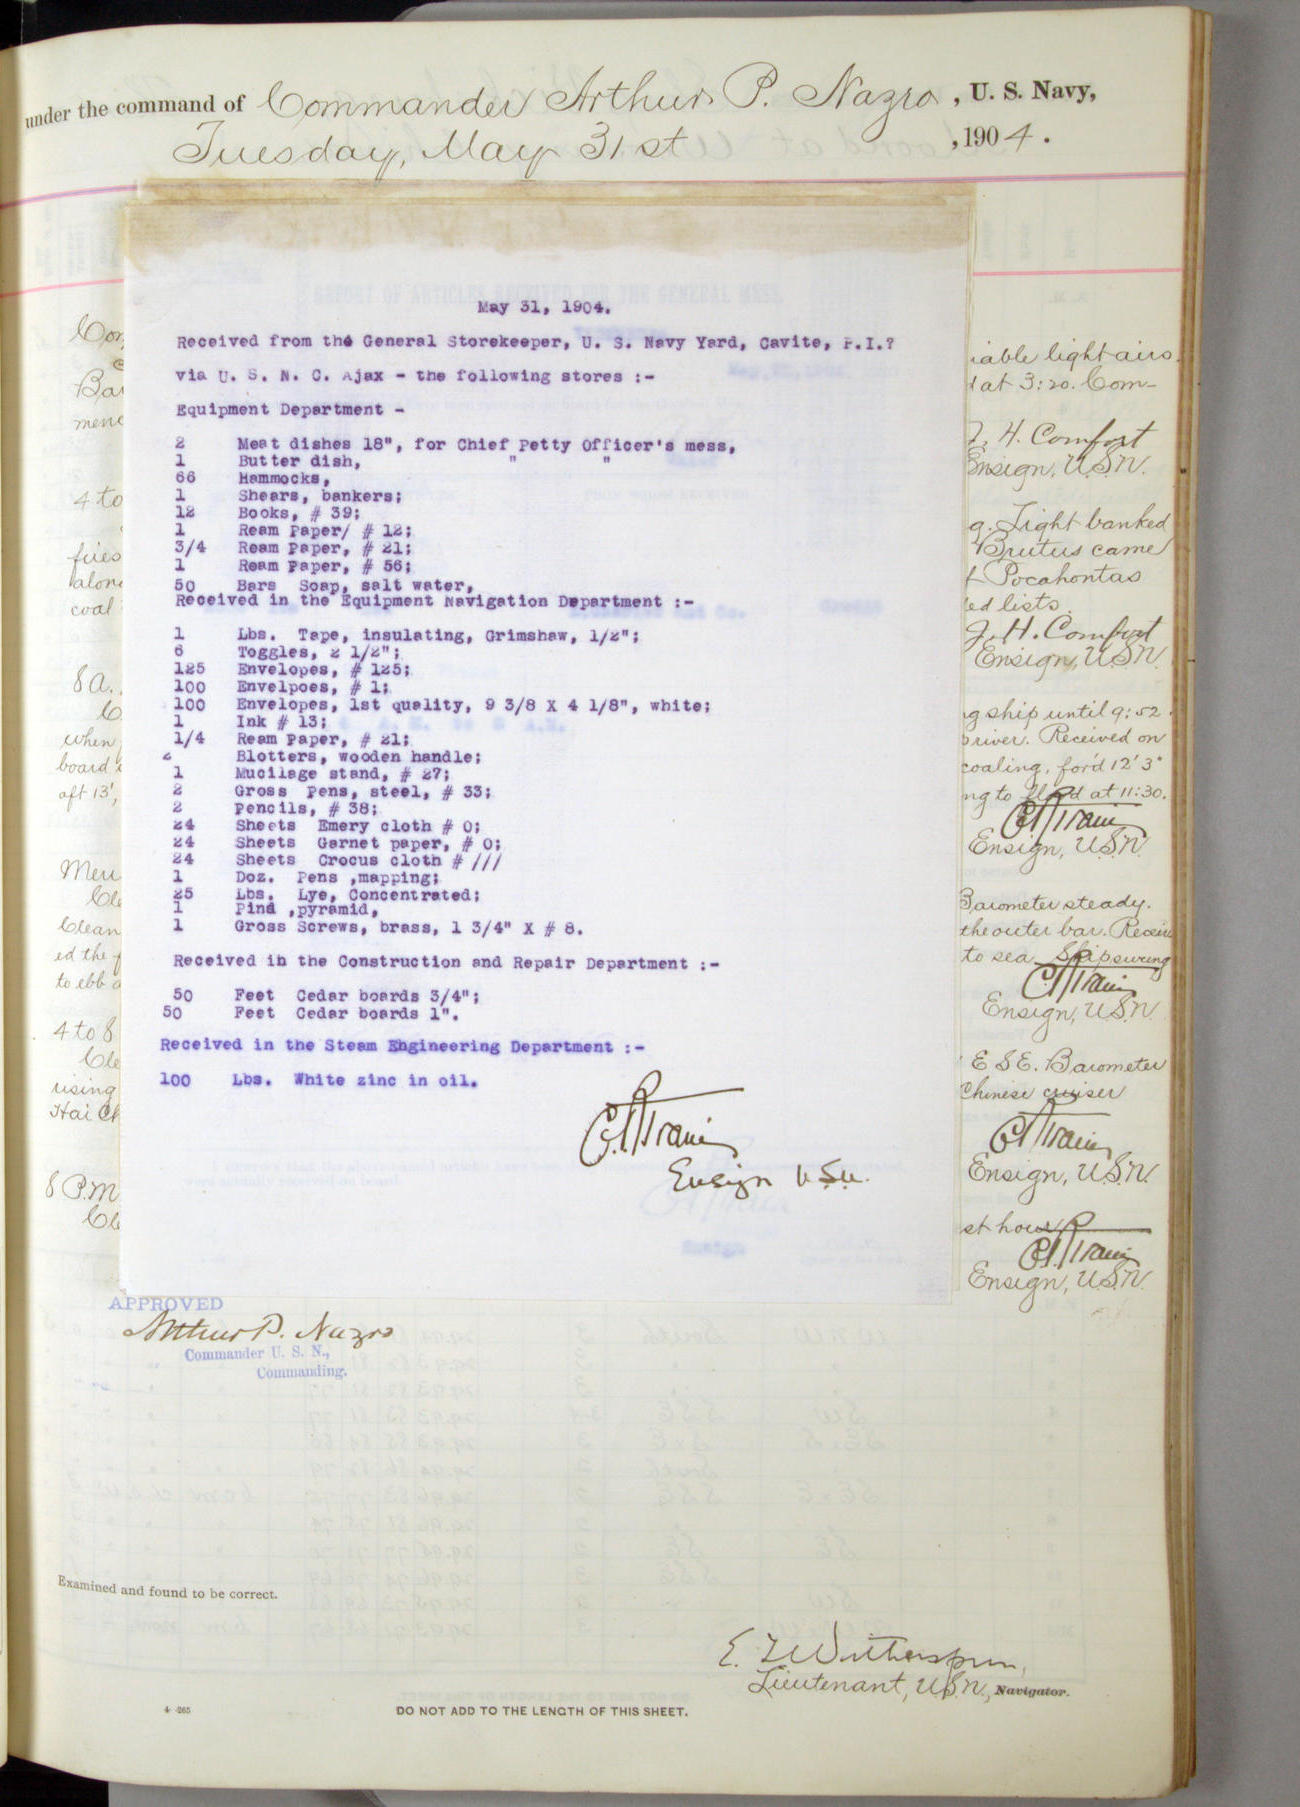 under the command of Commander Arthur P. Nazro, U. S. Navy,
Tuesday, May 31st, 1904.
May 31, 1904.
Received from the General Storekeeper, U. S. Navy Yard, Cavite, P.I.?
via U. S. N. C. Ajax - the following stores :-
Equipment Department -
2 Meat dishes 18", for Chief Petty Officer's mess,
1 Butter dish, " "
66 Hammocks,
1 Shears, bankers;
12 Books, # 39;
1 Ream Paper/ # 12;
3/4 Ream Paper, # 21;
1 Ream Paper, # 56;
50 Bars Soap, salt water,
Received in the Equipment Navigation Department :-
1 Lbs. Tape, insulating, Grimshaw, 1/2";
6 Toggles, 2 1/2";
125 Envelopes, # 125;
100 Envelpoes, # 1;
100 Envelopes, 1st quality, 9 3/8 X 4 1/8", white;
1 Ink # 13;
1/4 Ream Paper, # 21;
2 Blotters, wooden handle;
1 Mucilage stand, # 27;
2 Gross Pens, steel, # 33;
2 Pencils, # 38;
24 Sheets Emery cloth # 0;
24 Sheets Garnet paper, # 0;
24 Sheets Crocus cloth # ///
1 Doz. Pens ,mapping;
25 Lbs. Lye, Concentrated;
1 Pina ,pyramid,
1 Gross Screws, brass, 1 3/4" X # 8.
Received in the Construction and Repair Department :-
50 Feet Cedar boards 3/4";
50 Feet Cedar boards 1".
Received in the Steam Engineering Department :-
100 Lbs. White zinc in oil.
C.R. Train
Ensign U.S.N.
Com
Bar
menc
4 to
fires
along
coal
8 A.
when
board
aft 13',
Meri
Cle
Clean
ed the
to ebb
4 to 8
Cle
rising
Hai Ch
8 P.M
Cle
iable light airs.
d at 3:20. Com-
J. H. Comfort
Ensign, U.S.N.
g. Light banked
Brutus came
f Pocahontas
ed lists.
J. H. Comfort
Ensign, U.S.N.
ng ship until 9:52
river. Received on
coaling, for'd 12' 3"
ng to flood at 11:30.
C.R. Train
Ensign, U.S.N.
Barometer steady.
the outer bar. Receiv
to sea. Ship swung
C.R. Train
Ensign, U.S.N.
E S E. Barometer
Chinese cruiser
C.R. Train
Ensign, U.S.N.
st hour
C.R. Train
Ensign, U.S.N.
APPROVED
Arthur P. Nazro
Commander U. S. N.,
Commanding.
Examined and found to be correct.
E. T. Witherspoon,
Lieutenant, U.S.N., Navigator.
4-265
DO NOT ADD TO THE LENGTH OF THIS SHEET.